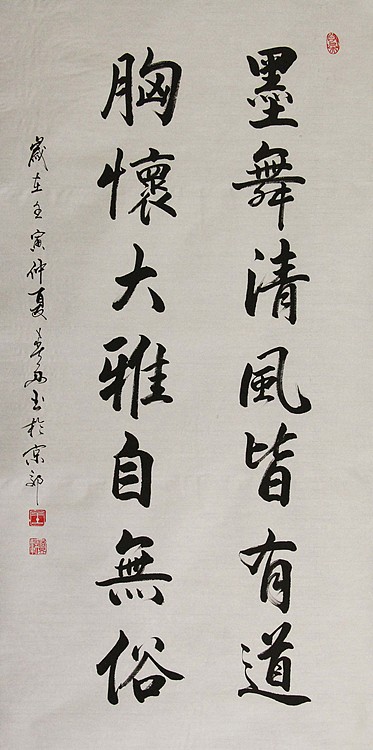 墨舞清風皆有道
胸懷大雅自無俗
歲在壬寅仲夏 書於京郊